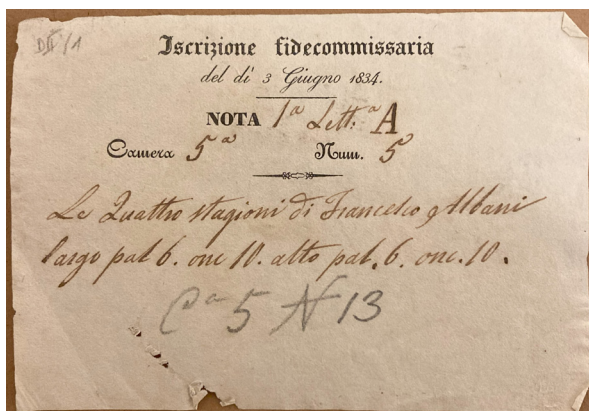 Iscrizione fidecommissaria
del dì 3 Giugno 1834.
NOTA 1ª Lett.ª A
Camera 5ª Num. 5
Le Quattro stagioni di Francesco Albani
largo pal 6. onc 10. alto pal. 6. onc. 10.
Cª 5 N 13